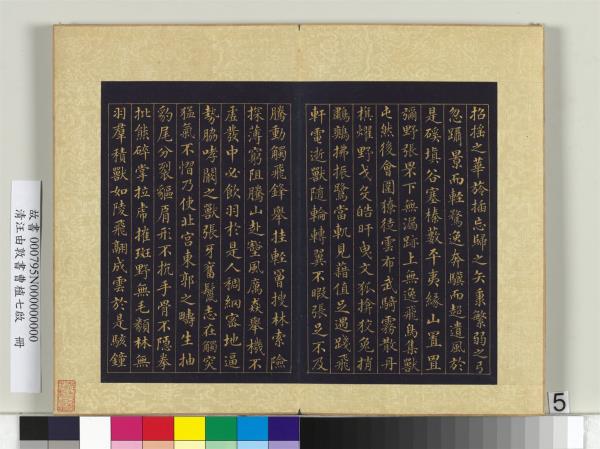 招搖之華旍插忘歸之矢秉繁弱之弓
忽躡景而輕騖逸奔驥而超遺風於
是磎填谷塞榛藪平夷緣山置罝
彌野張罘下無漏跡上無逸飛鳥集獸
屯然後會圍獠徒雲布武騎霧散丹
旗燿野戈殳皓旰曳文狐揜狡兔捎
鷫鷞拂振鷺當軌見藉值足遇踐飛
軒電逝獸隨輪轉翼不暇張足不及
騰動觸飛鋒舉挂輕罾搜林索險
探薄窮阻騰山赴壑風厲焱舉機不
虛發中必飲羽於是人稠網密地逼
勢脅哮闞之獸張牙奮鬣志在觸突
猛氣不慴乃使北宮東郭之疇生抽
豹尾分裂貙肩形不抗手骨不隱拳
批熊碎掌拉虎摧斑野無毛類林無
羽羣積獸如陵飛翮成雲於是駭鐘
故書 000795N000000000
清汪由敦書曹植七啟 冊
5